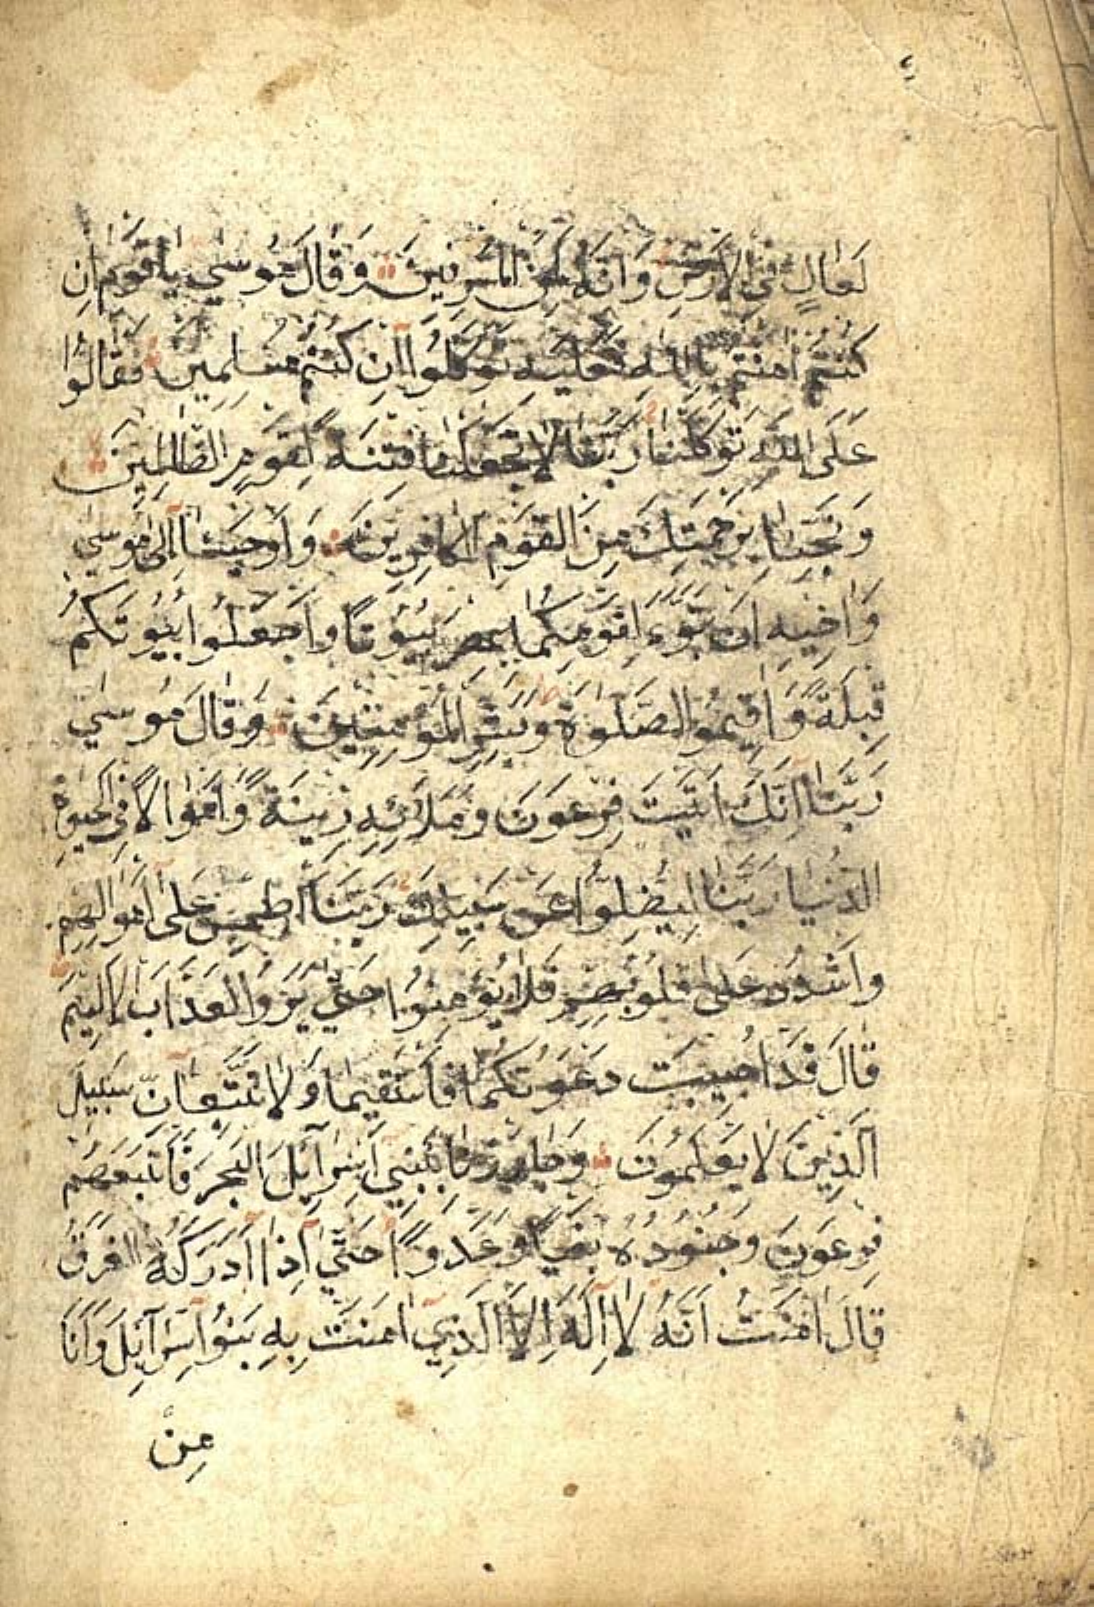 لَعَالٍ فِي الْاَرْضِ وَاِنَّهُ لَمِنَ الْمُسْرِفِينَ وَقَالَ مُوسٰي يَا قَوْمِ اِنْ
كُنْتُمْ اٰمَنْتُمْ بِاللّٰهِ فَعَلَيْهِ تَوَكَّلُوا اِنْ كُنْتُمْ مُسْلِمِينَ فَقَالُوا
عَلَى اللّٰهِ تَوَكَّلْنَا رَبَّنَا لَا تَجْعَلْنَا فِتْنَةً لِقَوْمِ الظَّالِمِينَ
وَنَجِّنَا بِرَحْمَتِكَ مِنَ الْقَوْمِ الْكَافِرِينَ وَاَوْحَيْنَا اِلٰى مُوسٰي
وَاَخِيهِ اَنْ تَبَوَّءَا لِقَوْمِكُمَا بِمِصْرَ بُيُوتًا وَاجْعَلُوا بُيُوتَكُمْ
قِبْلَةً وَاَقِيمُوا الصَّلٰوةَ وَبَشِّرِ الْمُؤْمِنِينَ وَقَالَ مُوسٰي
رَبَّنَا اِنَّكَ اٰتَيْتَ فِرْعَوْنَ وَمَلَائَهُ زِينَةً وَاَمْوَالًا فِي الْحَيٰوةِ
الدُّنْيَا رَبَّنَا لِيُضِلُّوا عَنْ سَبِيلِكَ رَبَّنَا اطْمِسْ عَلٰى اَمْوَالِهِمْ
وَاشْدُدْ عَلٰى قُلُوبِهِمْ فَلَا يُؤْمِنُوا حَتّٰي يَرَوُا الْعَذَابَ الْاَلِيمَ
قَالَ قَدْ اُجِيبَتْ دَعْوَتُكُمَا فَاسْتَقِيمَا وَلَا تَتَّبِعَانِّ سَبِيلَ
الَّذِينَ لَا يَعْلَمُونَ وَجَاوَزْنَا بِبَنِيٓ اِسْرَآئِلَ الْبَحْرَ فَاَتْبَعَهُمْ
فِرْعَوْنُ وَجُنُودُهُ بَغْيًا وَعَدْوًا حَتّٰي اِذَا اَدْرَكَهُ الْغَرَقُ
قَالَ اٰمَنْتُ اَنَّهُ لَا اِلٰهَ اِلَّا الَّذِي اٰمَنَتْ بِهِ بَنُوا اِسْرَآئِلَ وَاَنَا
مِنَ